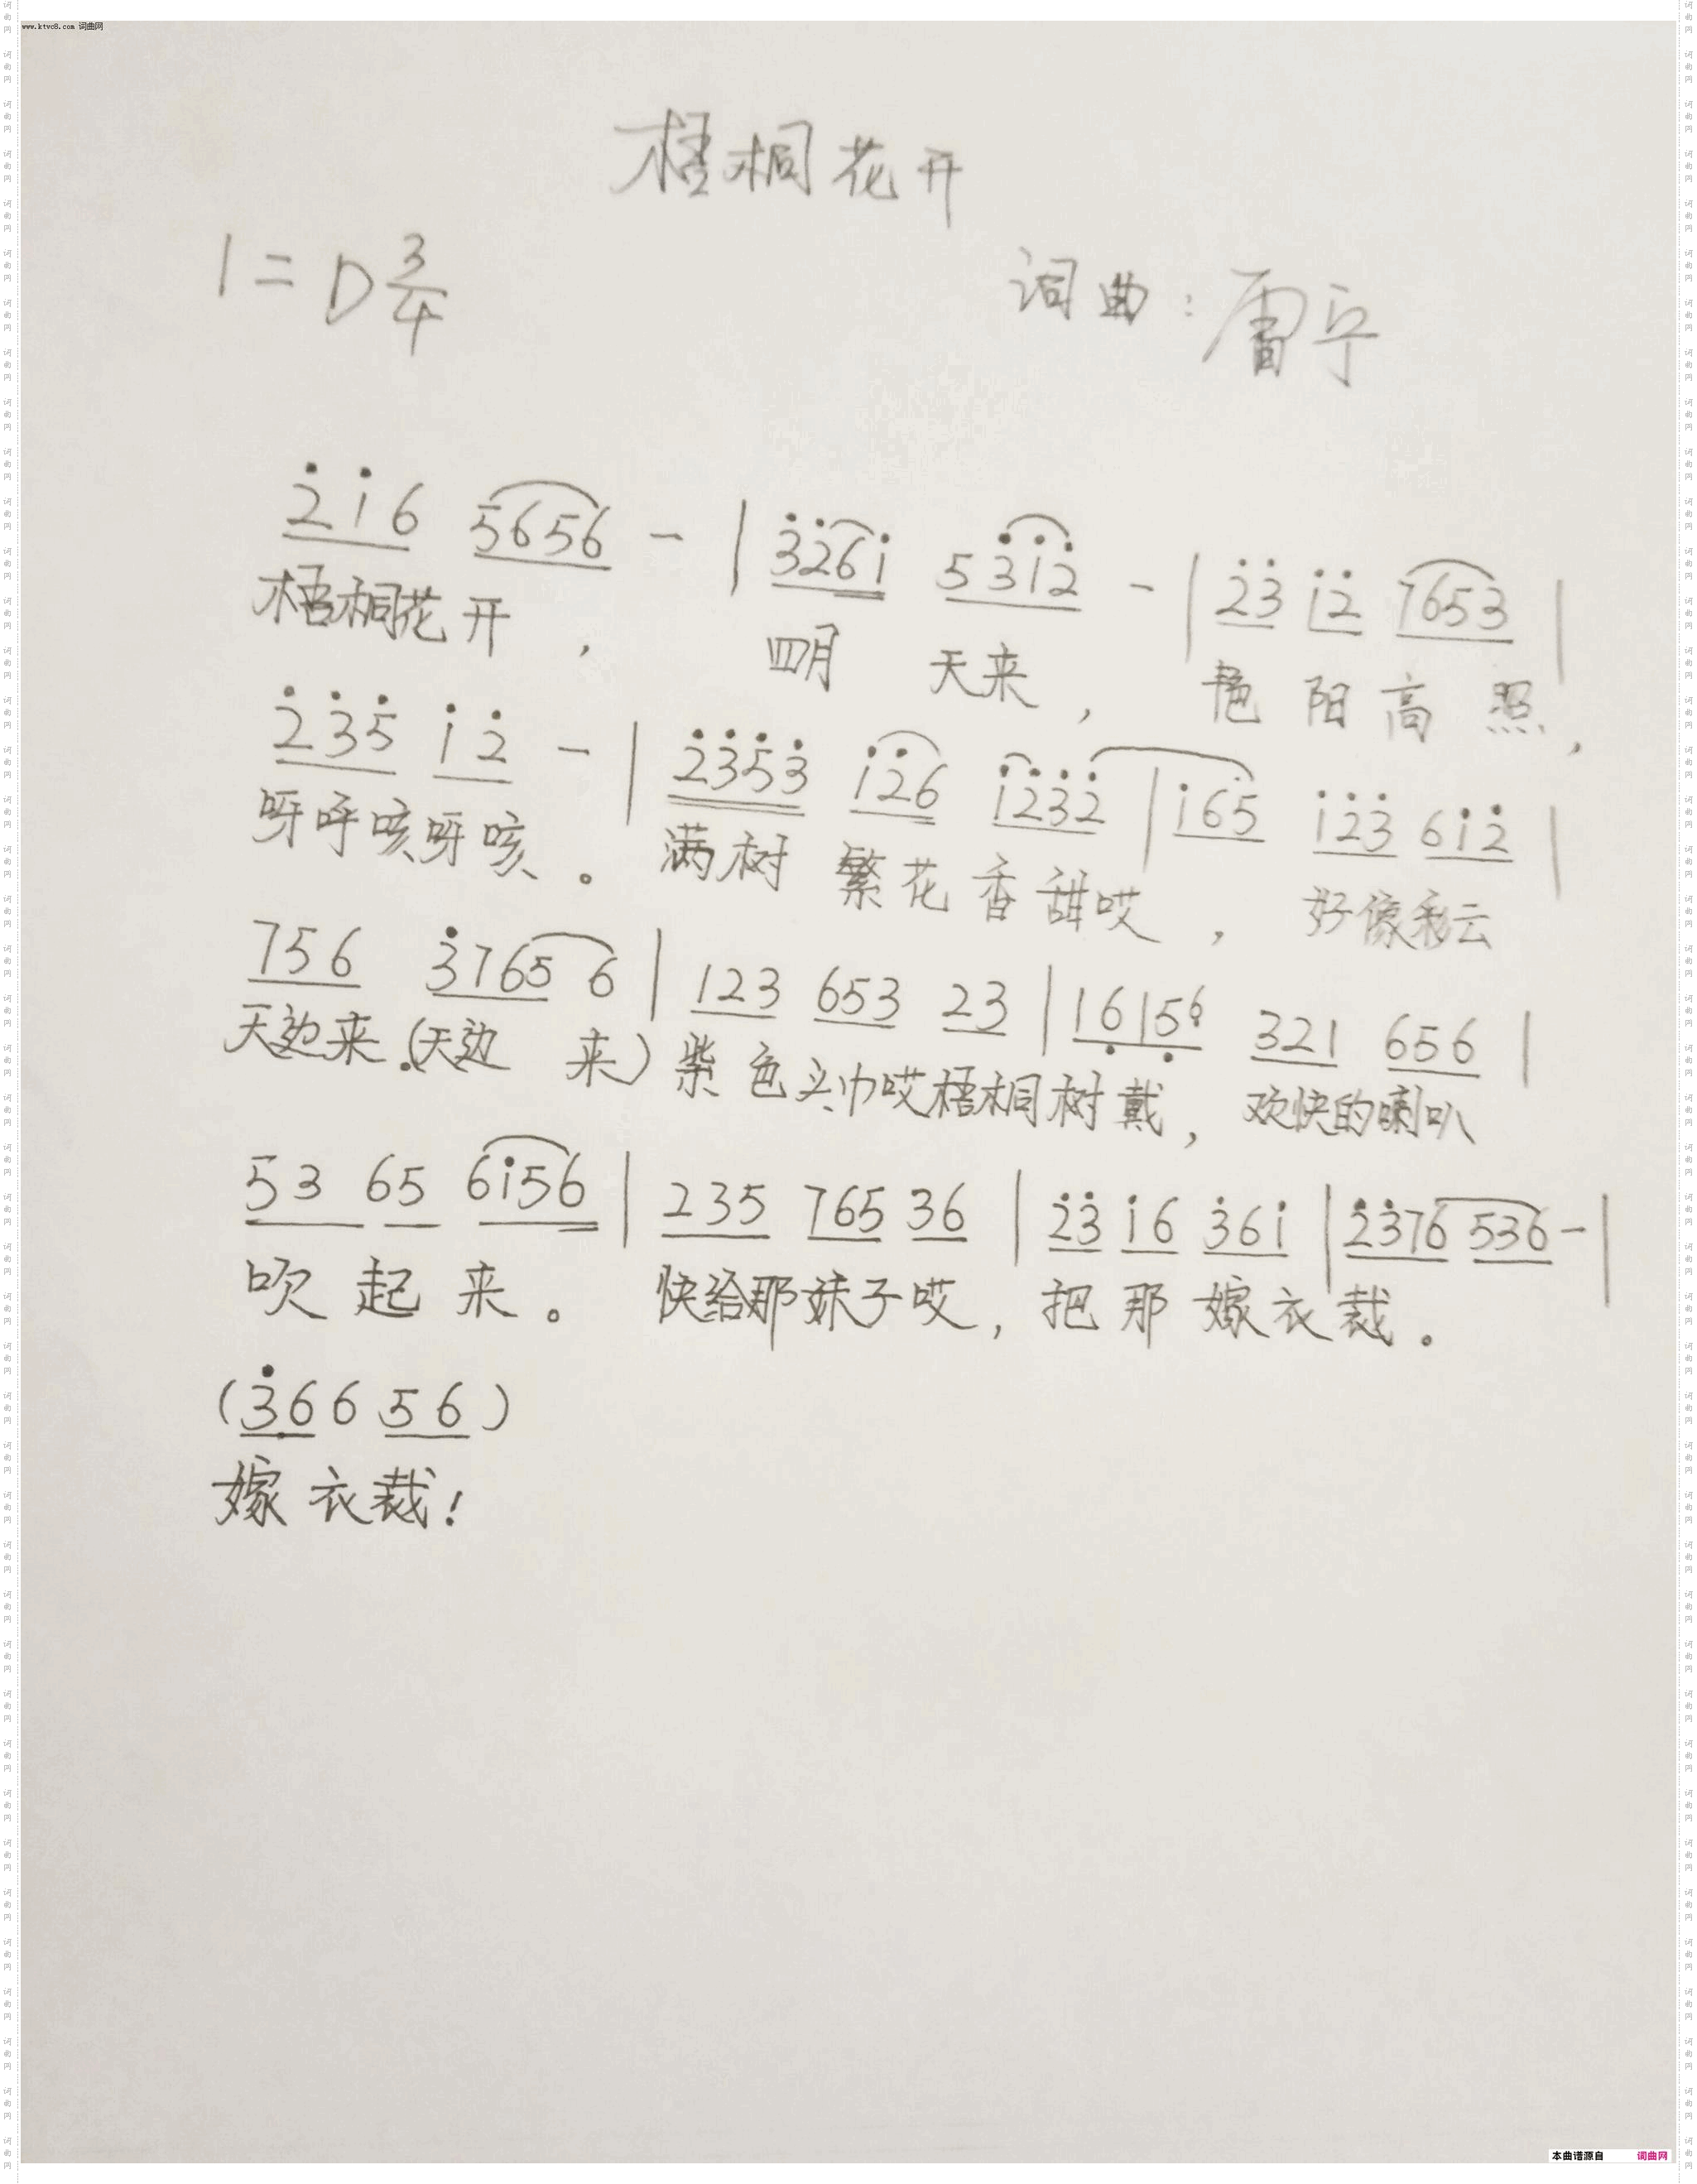 www.ktvc8.com 词曲网
梧桐花开
1=D 3/4
词曲:雷宁
2̇1̇6 5656 - | 3̇2̇61̇ 53̇1̇2̇ - | 2̇3̇ 1̇2̇ 7653 |
梧桐花开, 四月天来, 艳阳高照,
2̇3̇5̇ 1̇2̇ - | 2̇3̇5̇3̇ 1̇2̇6 1̇2̇3̇2̇ | 1̇65 1̇2̇3̇ 61̇2̇ |
呀呼咳呀咳。满树繁花香甜哎, 好像彩云
756 3̇765 6 | 123 653 23 | 16̣15̣6̣ 321 656 |
天边来.(天边 来)紫色头巾哎梧桐树戴, 欢快的喇叭
53 65 61̇56 | 235 765 36 | 2̇3̇ 1̇6 3̇61̇ | 2̇3̇76 536 - |
吹起来。快给那妹子哎, 把那嫁衣裁。
(3̇66 56)
嫁衣裁!
本曲谱源自 词曲网